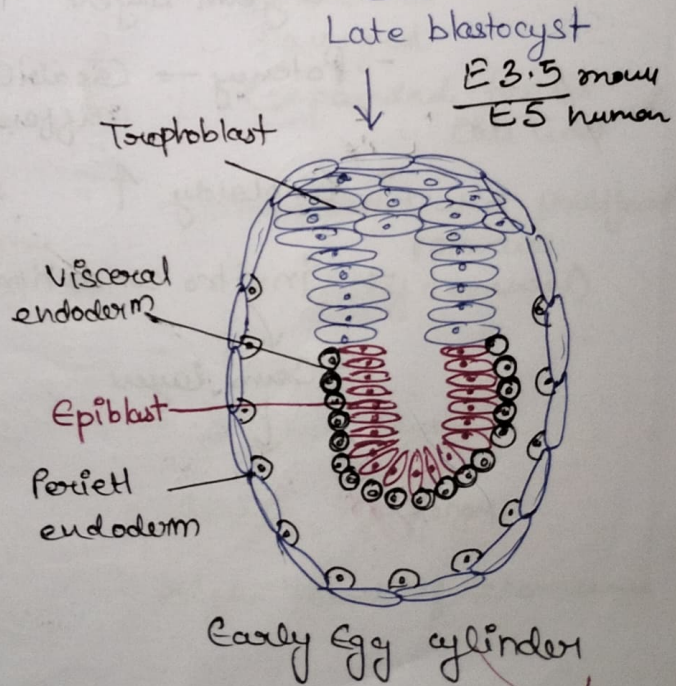 Late blastocyst
E3.5 mouse
E5 human
Trophoblast
Visceral
endoderm
Epiblast
Parietl
endoderm
Early Egg cylinder